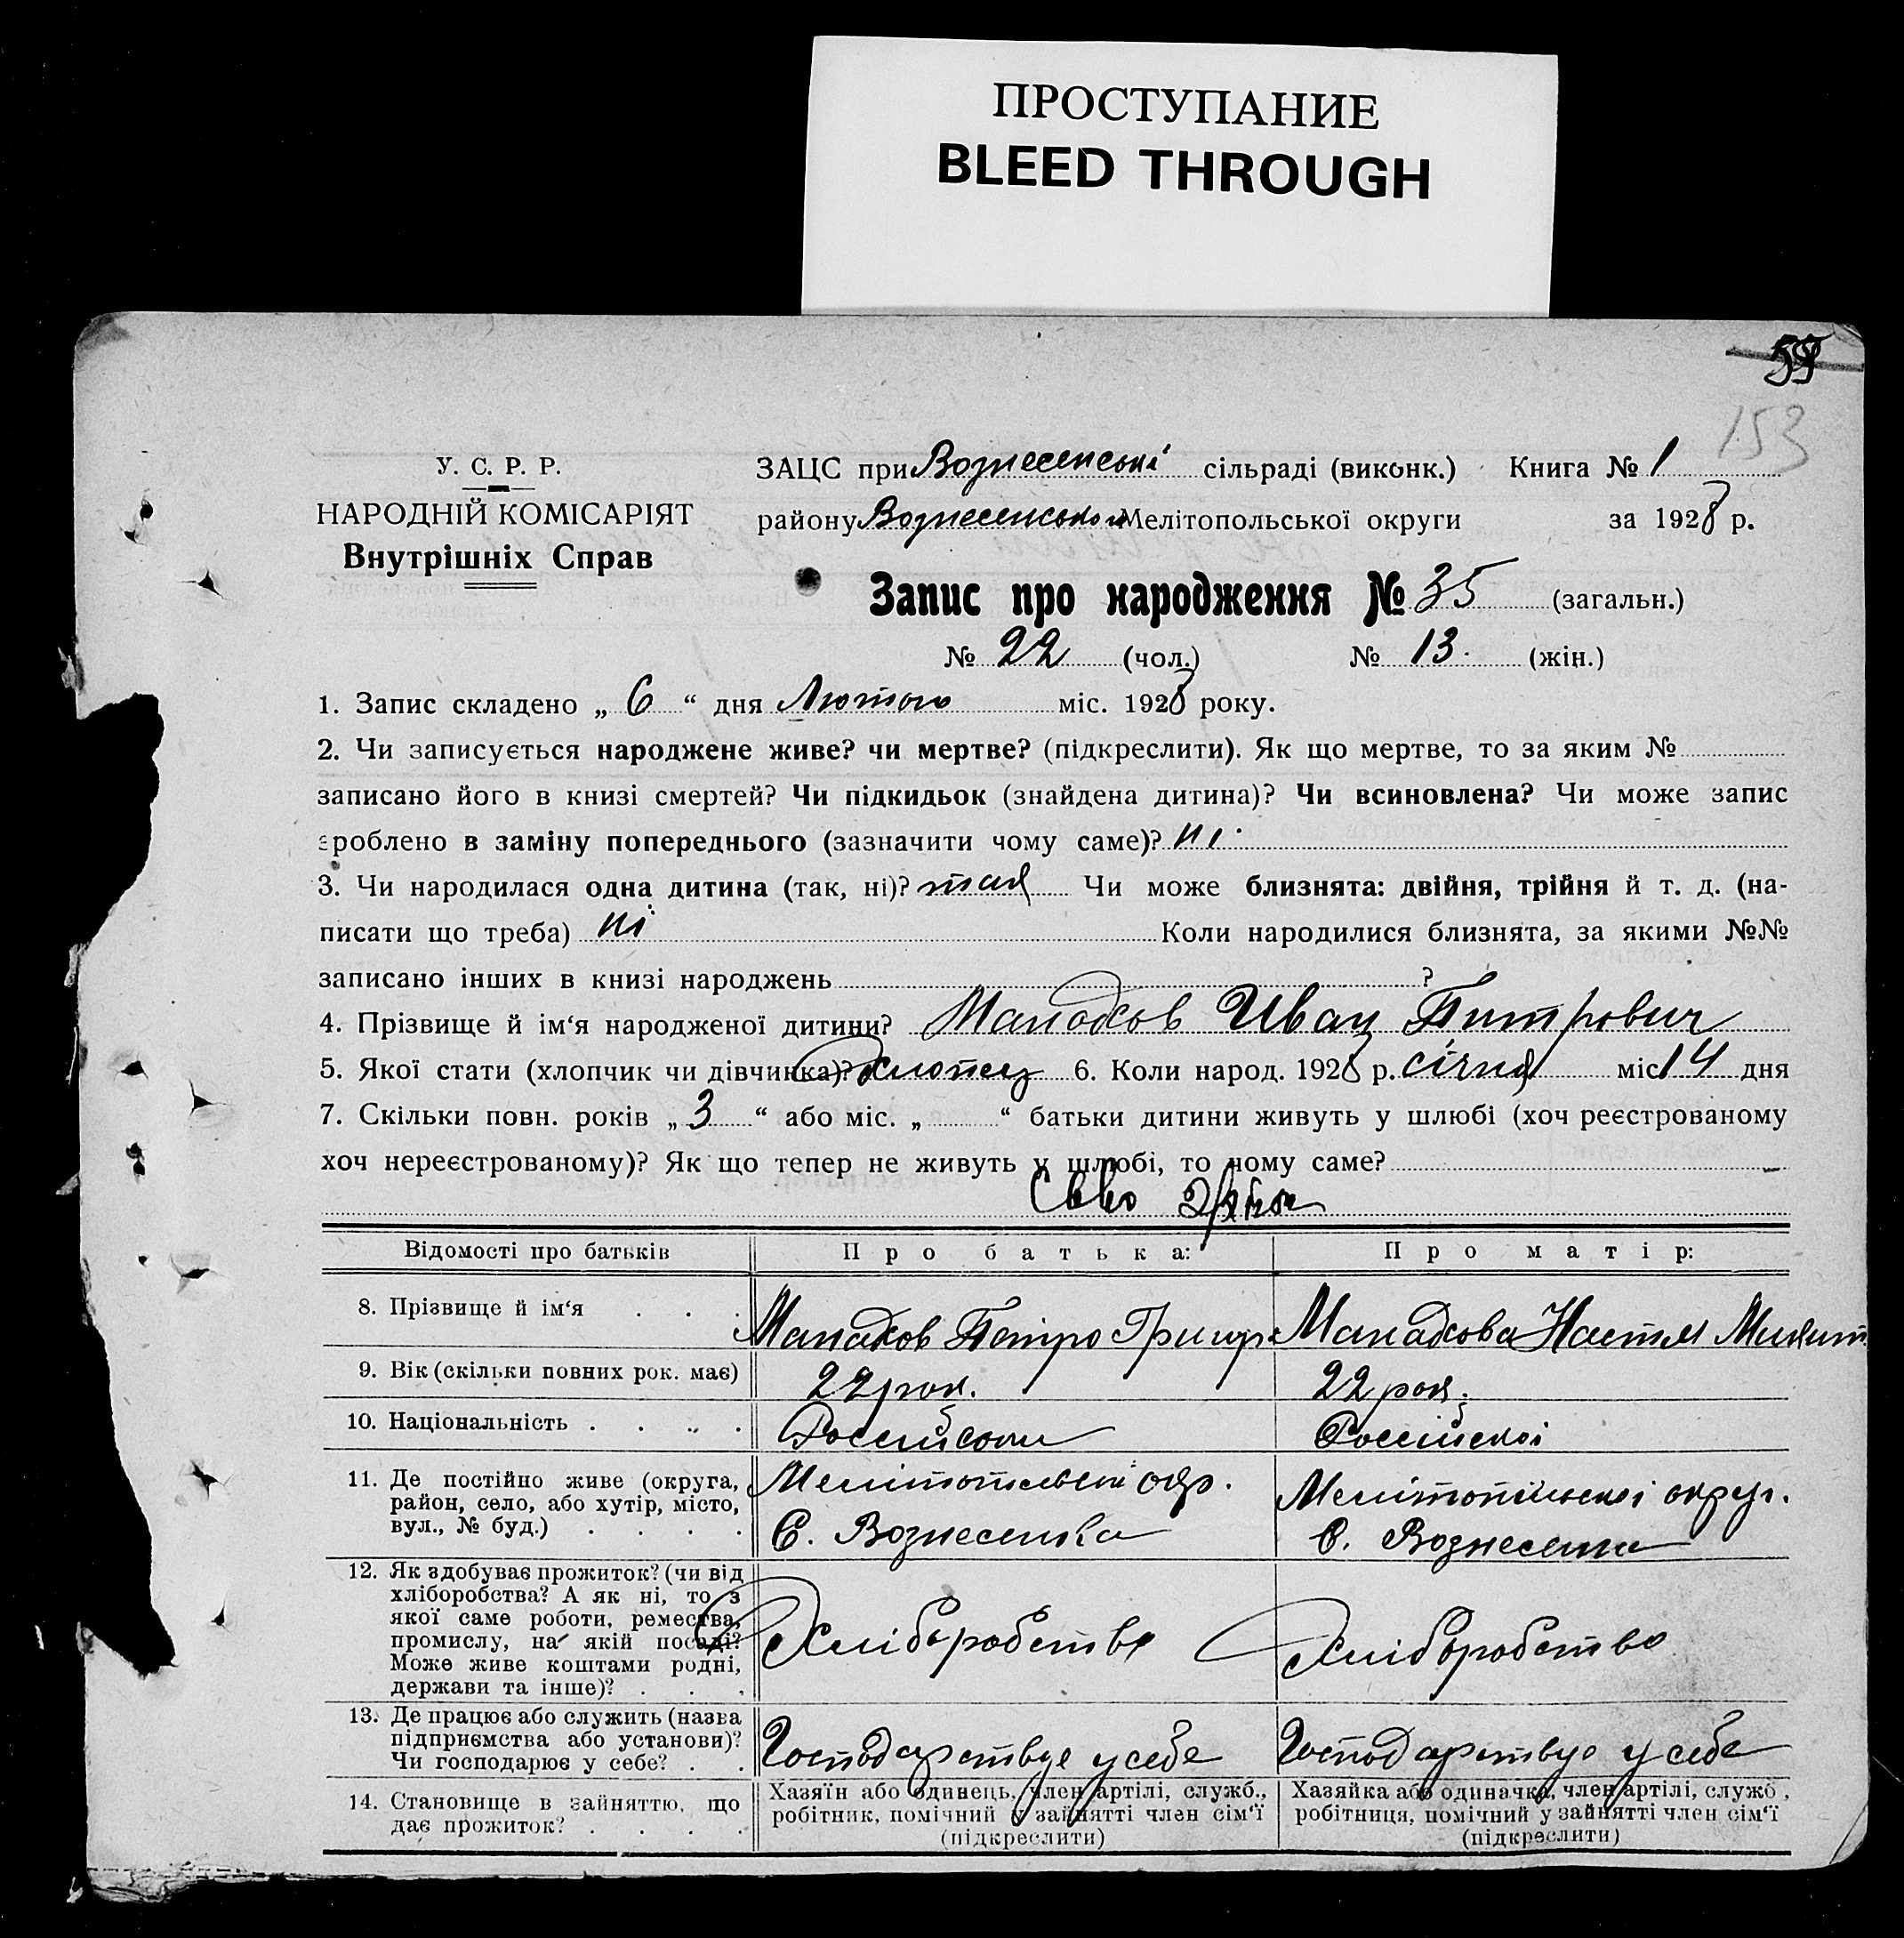 ПРОСТУПАНИЕ
BLEED THROUGH
153
У. С. Р. Р.
НАРОДНІЙ КОМІСАРІЯТ
Внутрішніх Справ
ЗАЦС при Вознесенські сільраді (виконк.) Книга № 1
району Вознесенського Мелітопольської округи за 1928 р.
Запис про народження № 35 (загальн.)
№ 22 (чол.) № 13. (жін.)
1. Запис складено „ 6 “ дня Лютого міс. 1928 року.
2. Чи записується народжене живе? чи мертве? (підкреслити). Як що мертве, то за яким №
записано його в книзі смертей? Чи підкидьок (знайдена дитина)? Чи всиновлена? Чи може запис
зроблено в заміну попереднього (зазначити чому саме)? ні
3. Чи народилася одна дитина (так, ні)? так Чи може близнята: двійня, трійня й т. д. (на-
писати що треба) ні Коли народилися близнята, за якими №№
записано інших в книзі народжень ?
4. Прізвище й ім‘я народженої дитини? Иван
5. Якої стати (хлопчик чи дівчинка)? Хлопец 6. Коли народ. 1928 р. січня міс 14 дня
7. Скільки повн. років „ 3 “ або міс. „ “ батьки дитини живуть у шлюбі (хоч реєстрованому
хоч нереєстрованому)? Як що тепер не живуть у шлюбі, то чому саме?
Відомості про батьків Про батька: Про матір:
8. Прізвище й ім‘я . . . Петро Григор Настя Микит
9. Вік (скільки повних рок. має) 22 рок. 22 рок.
10. Національність . . . . Российської Российскої
11. Де постійно живе (округа,
район, село, або хутір, місто,
вул., № буд.) . . . .
Мелітопольськ окр.
С. Вознесенка
Мелітопільскої округ.
С. Вознесенка
12. Як здобуває прожиток? (чи від
хліборобства? А як ні, то з
якої саме роботи, ремества,
промислу, на якій посаді?
Може живе коштами родні,
держави та інше)? . . .
Хліборобство
Хліборобство
13. Де працює або служить (назва
підприємства або установи)?
Чи господарює у себе? . .
Господарствує у себе
Господарствує у себе
14. Становище в зайняттю, що
дає прожиток? . . . .
Хазяїн або одинець, член артілі, служб.,
робітник, помічний у зайнятті член сім‘ї
(підкреслити)
Хазяйка або одиначка, член артілі, служб,
робітниця, помічний у зайнятті член сім‘ї
(підкреслити)